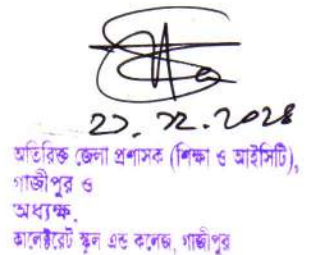 অতিরিক্ত জেলা প্রশাসক (শিক্ষা ও আইসিটি),
গাজীপুর ও
অধ্যক্ষ.
কালেক্টরেট স্কুল এন্ড কলেজ, গাজীপুর